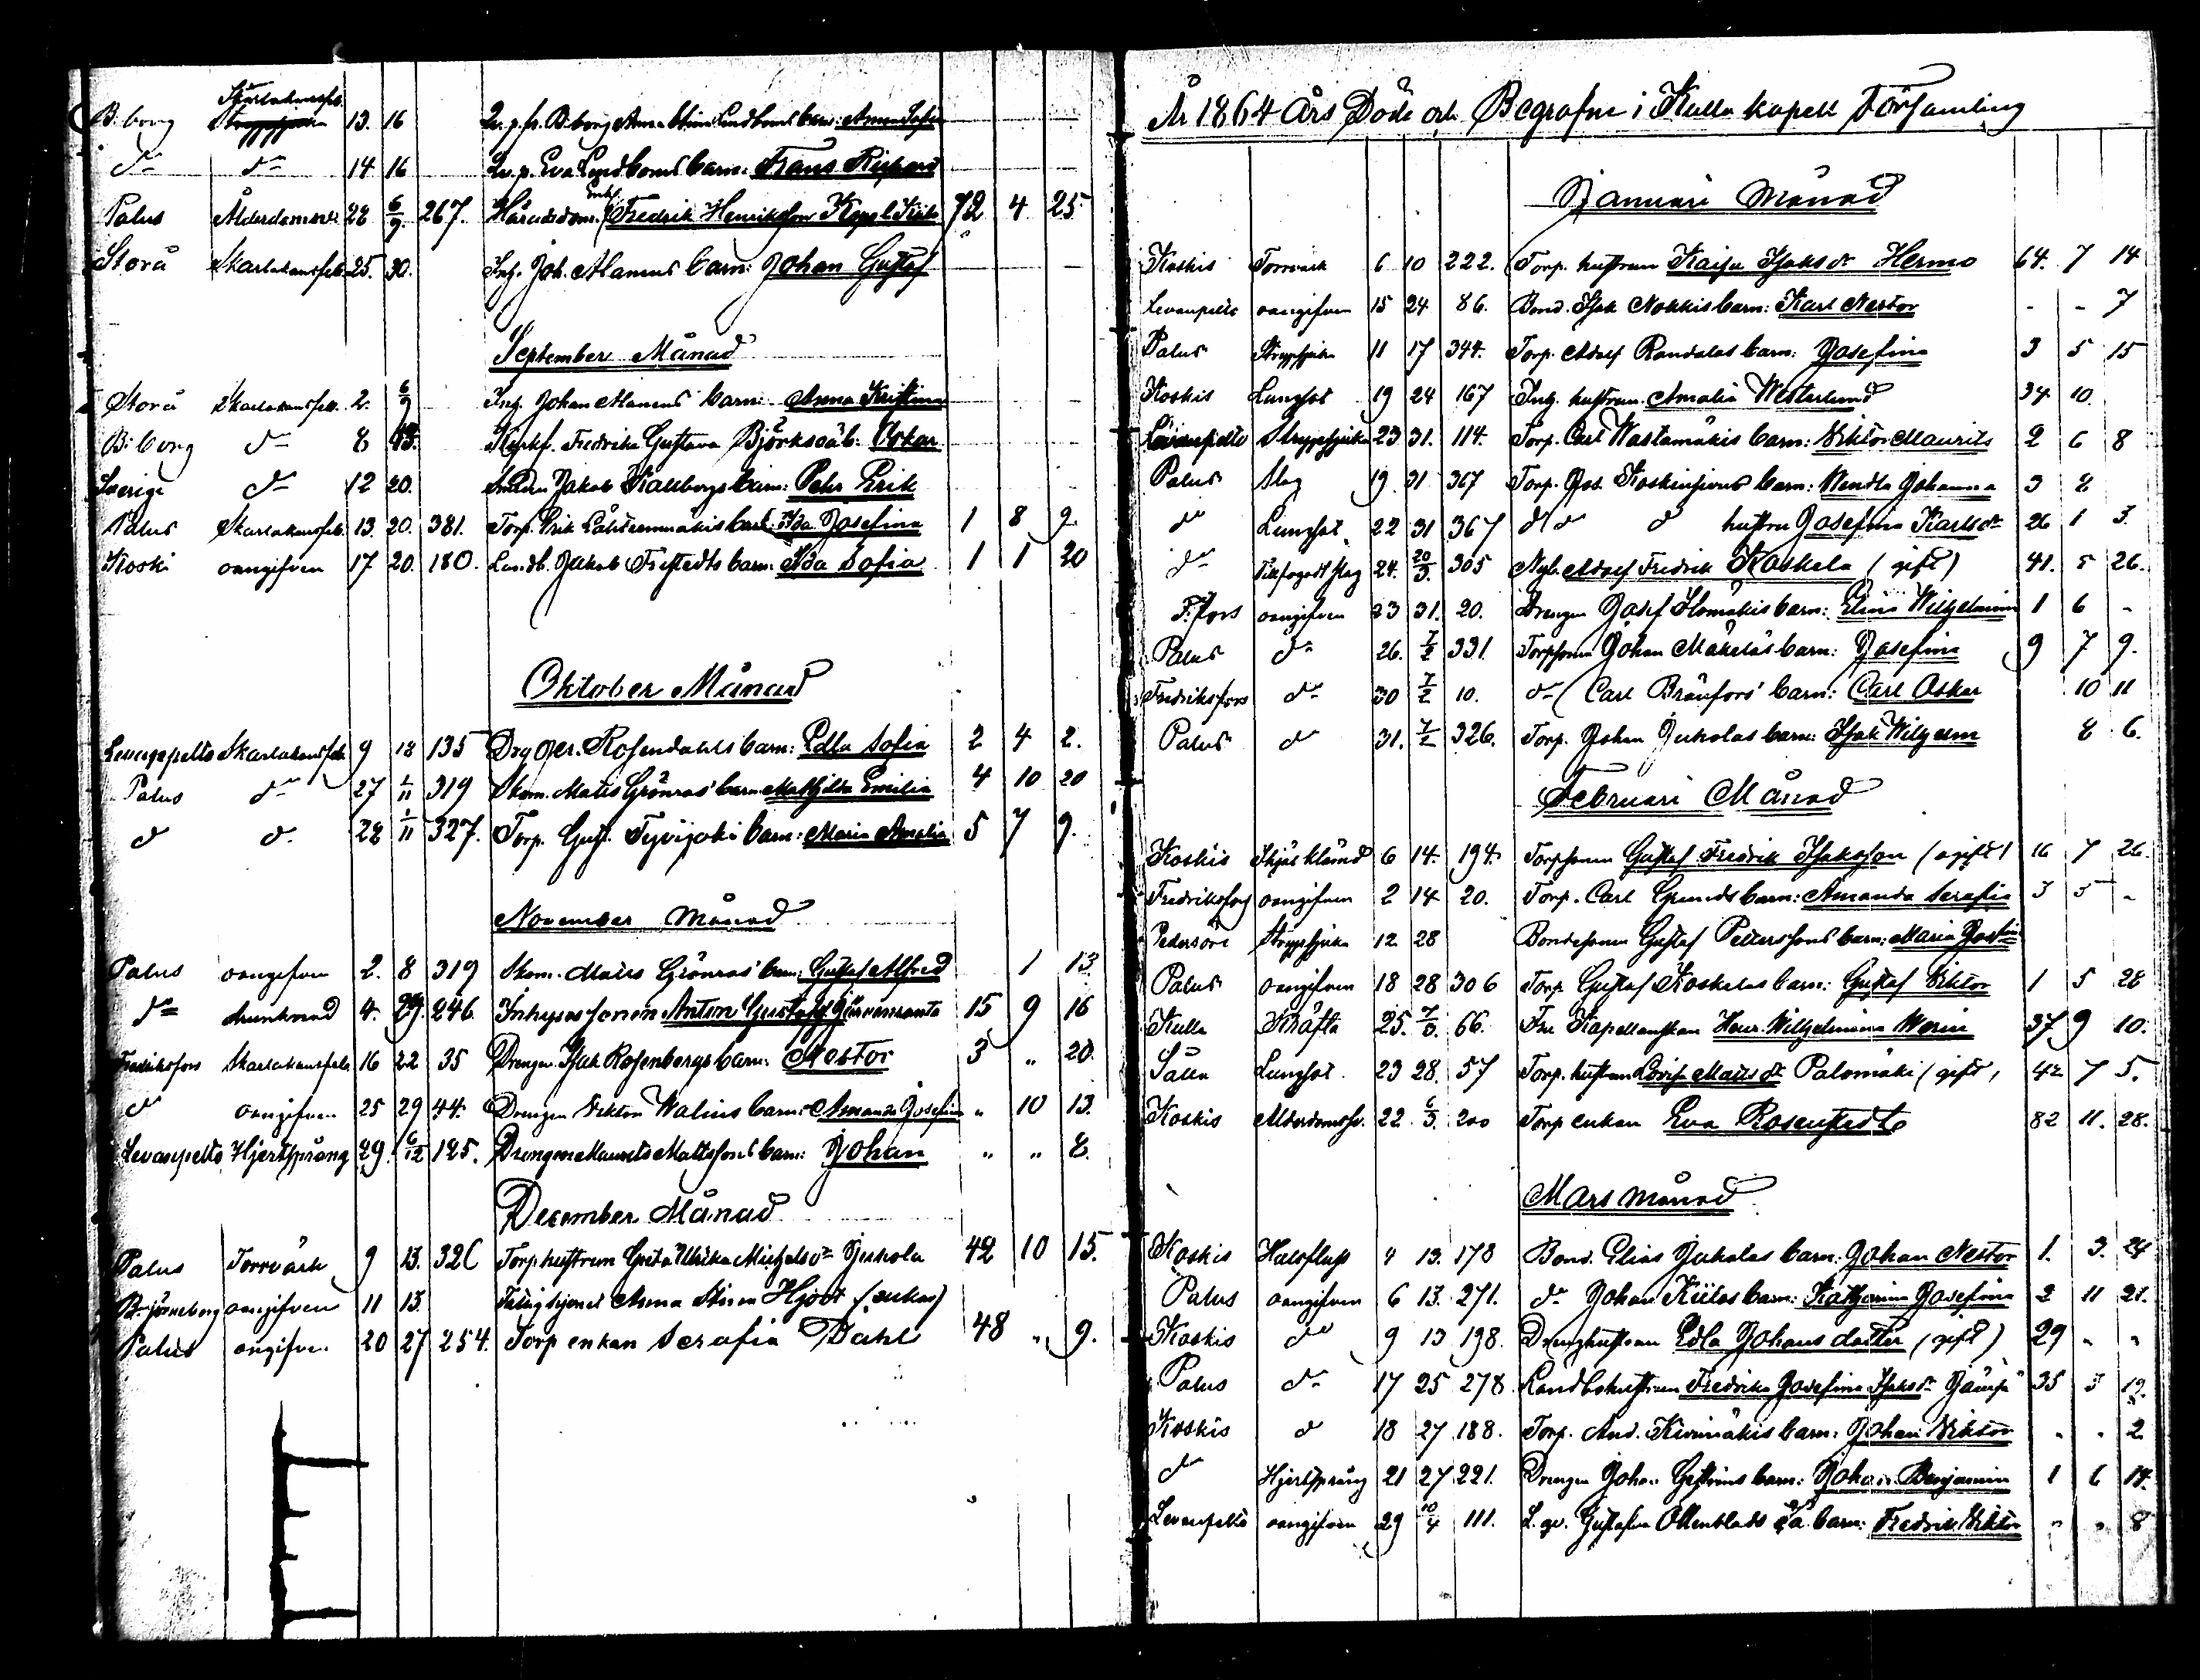 B:borg Skarlakansfeb. 13. 16 Qv.p. fr. B:borg Anna Stina Lindboms barn: Anna Sofia
d:o d:o 14 16 Qv.p. Eva Lindboms barn: Frans Richard
Palus Ålderdomsv. 28 6/9. 267. Häradsdom. Enkl. Fredrik Henriksson 72 4 25
Storå Skarlakansfeb. 25. 30. Inh. Joh. Alanens barn: Johan Gustaf
September Månad
Storå Skarlakansfeb. 2. 6/9 Inh. Johan Alanens barn: Anna Kristina
B:borg d:o 8 13. Fredrika Gustava Björks oä b: Oskar
Sverige d:o 12 20. Smeden Jakob Hallbergs barn: Pehr Erik
Palus Skarlakansfeb. 13. 20. 381. Torp. Erik Lähteenmäkis barn: Ida Josefina 1 8 9.
Koski oangifven 17 20. 180. Landb. Jakob Fristedts barn: Ida Sofia 1 1 20
Oktober Månad
Levanpelto Skarlakansfeb. 9 18 135 Drg Jer. Rosendahls barn: Edla Sofia 2 4 2.
Palus d:o 27 1/11 319 Skom. Matts Grönros' barn Mathilda Emilia 4 10 20
d d. 28 1/11 327. Torp. Gust. Tyvijokis barn: Maria Amalia 5 7 9.
November Månad
Palus oangifven 2. 8 319 Skom. Matts Grönros' barn: Gustaf Alfred 1 13
d:o drunknad 4. 29. 246 Inhysessonen Anton Gustaf Järvenranta 15 9 16
Fredriksfors Skarlakansfeb. 16 22 35 Drengen Isak Rosenbergs barn: Nestor 3 " 20.
d oangifven 25 29 44. Drengen Viktor Walins barn: Amanda Josefina " 10 13.
Levanpelto Hjertsprång 29. 6/12 125. Drengen Maurits Mattssons barn: Johan " " 8.
December Månad
Palus Torrvärk 9 13. 326 Torp.hustrun Greta Ulrika Michelsd:r Jukola 42 10 15.
Björneborg oangifven 11 13. Fattighjonet Anna Stina Hjort (enka)
Palus oangifven 20 27 254. Torp enkan Serafia Dahl 48 " 9.
År 1864 Års Döde och Begrafne i Kulla kapell Församling
Januari Månad
Koskis Torrvärk 6 10 222. Torp. hustrun Kaisa Isaksdr Hermo 64. 7 14
Levanpelto oangifven 15 24 86. Bond. Isak Nokkis barn: Karl Nestor - - 7
Palus Strypsjuka 11 17 344. Torp. Adolf Randalas barn: Josefina 3 5 15
Koskis Lungsot 19 24 167 Inh. hustrun Amalia Westerlund 34 10.
Levanpelto Strypsjuka 23 31. 114. Torp. Carl Wastamäkis barn: Viktor Maurits 2 6 8
Palus Slag 19. 31 367 Torp. Joh. Koskinens barn: Wendla Johanna 3 8
d:o Lungsot 22 31 367 d:o d:o d hustru Josefina Karlsdr 26 1 3.
d:o slag 24. 20/3. 305 Nyb. Adolf Fredrik Koskela (gift) 41. 5 26.
F:fors oangifven 23 31. 20. Drengen Josef Ilomäkis barn: Elina Wilhelmina 1 6 -
Palus d:o 26. 7/2 331. Torpsonen Johan Mäkeläs barn: Josefina 9 7 9.
Fredriksfors d:o 30 7/2 10. d:o Carl Bränfors' barn: Carl Oskar 10 11
Palus d:o 31. 7/2 326. Torp. Johan Jukolas barn: Isak Wilhelm 8 6.
Februari Månad
Koskis 6 14. 194. Torpsonen Gustaf Fredrik Isaksson (ogift) 16 7 26.
Fredriksfors oangifven 2 14 20. Torp. Carl Grunds barn: Amanda Serafia 3 5 -
Pedersöre Strypsjuka 12 28 Bondesonen Gustaf Petterssons barn: Maria Josefina
Palus oangifven 18 28 306 Torp. Gustaf Koskelas barn: Gustaf Viktor 1 5 28
Kulla Kräfta 25. 7/3. 66. Fru Kapellanskan Henr. Wilhelmina Werin 37 9 10.
Lungsot 23 28. 57 Torp. hustrun Lovisa Mattsdr Palomäki (gift) 42 7 5.
Koskis Ålderdomsv. 22. 6/3. 200 Torp enkan Eva Rosenstedt 82 11. 28.
Mars månad
Koskis Halsfluss 4 13. 178 Bond. Elias Jukolas barn: Johan Nestor 1. 3. 24
Palus oangifven 6 13. 271. d:o Johan Kiilos barn: Katharina Josefina 2 11 21.
Koskis d:o 9 13 198. Dreng hustrun Edla Johans dotter (gift) 29 - -
Palus d:o 17 25 278. Landb.hustrun Fredrika Josefina Isaksdr 35 3 19.
Koskis d 18 27 188. Torp. And. Kivimäkis barn: Johan Viktor - - 2
d:o Hjertsprång 21 27 221. Drengen Johan barn: Johan Benjamin 1 6 14.
Levanpelto oangifven 29 10/4 111. Gustafva Ollenblads oä barn: Fredrik Viktor " " 8